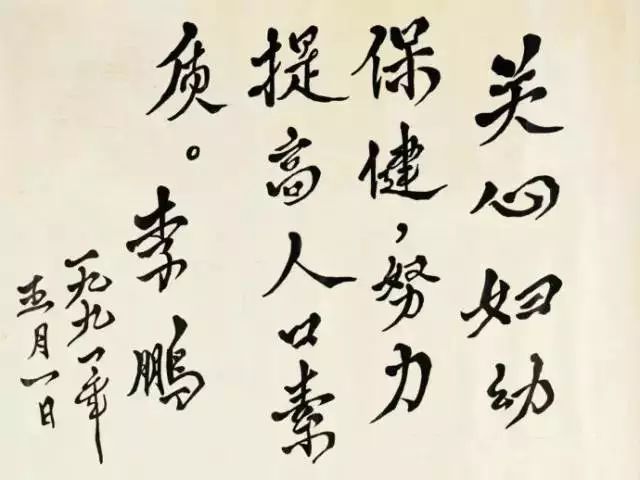 关心妇幼
保健，努力
提高人口素
质。李鹏
一九九一年
五月一日